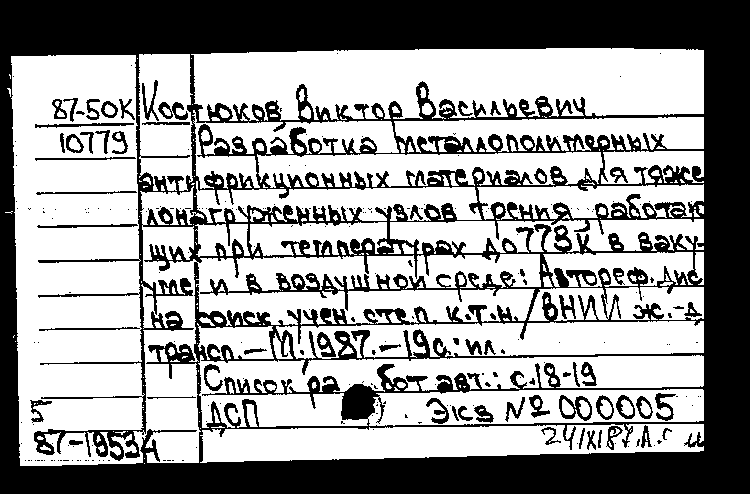 87-50К Костюков Виктор Васильевич.
10779 Разработка металлополимерных
антифрикционных материалов для тяже
лонагруженных узлов трения, работаю
щих при температурах до 773К в ваку-
уме и в воздушной среде: Автореф. Дис
на соиск. учен. степ. к.т.н. / ВНИИ ж.-д
трансп. – М. 1987. – 19с.: ил.
Список работ авт.: с.18-19
5 ДСП Экз № 000005
87-19534